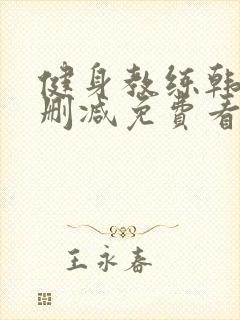 健身教练韩
删减免費看
王永春